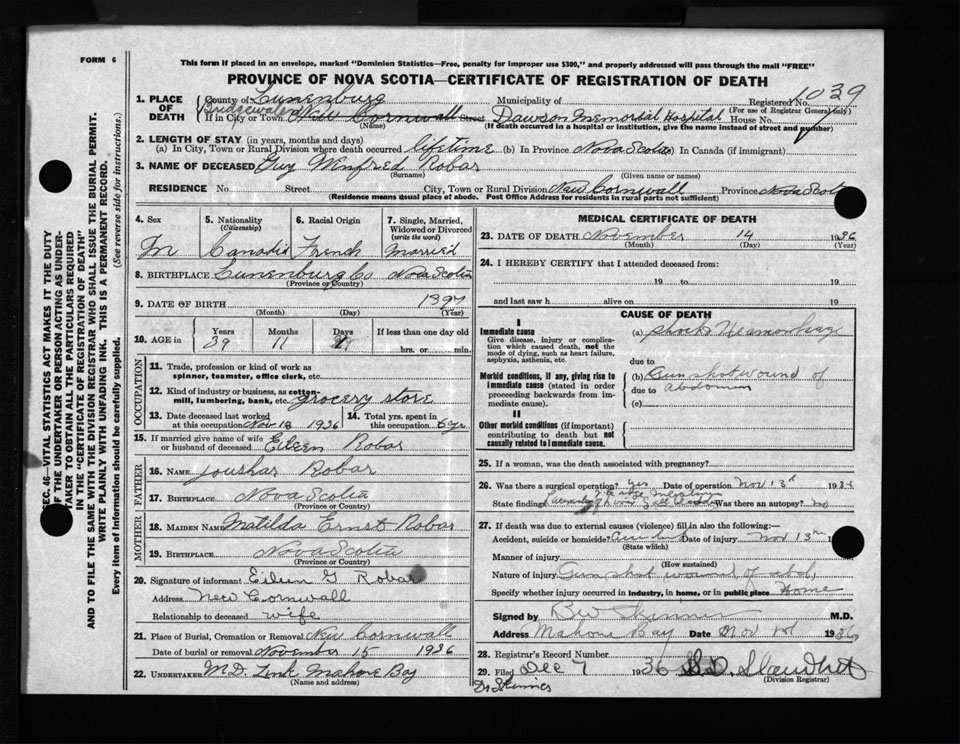 FORM 6
This form if placed in an envelope, marked "Dominion Statistics—Free, penalty for improper use $300," and properly addressed will pass through the mail "FREE"
PROVINCE OF NOVA SCOTIA—CERTIFICATE OF REGISTRATION OF DEATH
SEC. 46—VITAL STATISTICS ACT MAKES IT THE DUTY
OF THE UNDERTAKER OR PERSON ACTING AS UNDER-
TAKER TO OBTAIN ALL THE PARTICULARS REQUIRED
IN THE "CERTIFICATE OF REGISTRATION OF DEATH"
AND TO FILE THE SAME WITH THE DIVISION REGISTRAR WHO SHALL ISSUE THE BURIAL PERMIT.
WRITE PLAINLY WITH UNFADING INK. THIS IS A PERMANENT RECORD.
Every item of Information should be carefully supplied. (See reverse side for instructions.)
1. PLACE OF DEATH County of Lunenburg Municipality of Registered No. 1039
(For use of Registrar General only)
Bridgewater
If in City or Town New Cornwall Street Dawson Memorial Hospital House No.
(Name) (If death occurred in a hospital or institution, give the name instead of street and number)
2. LENGTH OF STAY (in years, months and days)
(a) In City, Town or Rural Division where death occurred lifetime (b) In Province Nova Scotia (c) In Canada (if immigrant)
3. NAME OF DECEASED Guy Winfred Robar
(Surname) (Given name or names)
RESIDENCE No. Street City, Town or Rural Division New Cornwall Province Nova Scotia
(Residence means usual place of abode. Post Office Address for residents in rural parts not sufficient)
4. Sex 5. Nationality (Citizenship) 6. Racial Origin 7. Single, Married, Widowed or Divorced (write the word)
M Canada French Married
8. BIRTHPLACE Lunenburg Co Nova Scotia
(Province or Country)
9. DATE OF BIRTH 1897
(Month) (Day) (Year)
10. AGE in Years Months Days If less than one day old
39 11 hrs. or min.
OCCUPATION
11. Trade, profession or kind of work as
spinner, teamster, office clerk, etc.
12. Kind of industry or business, as cotton-
mill, lumbering, bank, etc. grocery store
13. Date deceased last worked 14. Total yrs. spent in
at this occupation Nov 13 1936 this occupation 5 yr
15. If married give name of wife
or husband of deceased Eileen Robar
FATHER
16. NAME Robar
17. BIRTHPLACE Nova Scotia
(Province or Country)
MOTHER
18. MAIDEN NAME Matilda Ernst Robar
19. BIRTHPLACE Nova Scotia
(Province or Country)
20. Signature of informant Eileen G Robar
Address New Cornwall
Relationship to deceased wife
21. Place of Burial, Cremation or Removal New Cornwall
Date of burial or removal November 15 1936
22. UNDERTAKER M.D. Zink Mahone Bay
(Name and address)
MEDICAL CERTIFICATE OF DEATH
23. DATE OF DEATH November 14 1936
(Month) (Day) (Year)
24. I HEREBY CERTIFY that I attended deceased from:
19 to 19
and last saw h alive on 19
CAUSE OF DEATH
I
Immediate cause (a) Shock & Haemorrhage
Give disease, injury or complica-
tion which caused death, not the
mode of dying, such as heart failure,
asphyxia, asthenia, etc.
due to
Morbid conditions, if any, giving rise to
immediate cause (stated in order
proceeding backwards from im-
mediate cause).
(b) Gun shot wound of
due to abdomen
(c)
II
Other morbid conditions (if important)
contributing to death but not
causally related to immediate cause.
25. If a woman, was the death associated with pregnancy?
26. Was there a surgical operation? yes Date of operation Nov 13th 1936
State findings Was there an autopsy? no
27. If death was due to external causes (violence) fill in also the following:—
Accident, suicide or homicide? Accident Date of injury Nov 13th 1
(State which)
Manner of injury
(How sustained)
Nature of injury Gun shot wound of abd.
Specify whether injury occurred in industry, in home, or in public place Home
Signed by M.D.
Address Mahone Bay Date Nov 1936
28. Registrar's Record Number
29. Filed Dec 7 1936
(Division Registrar)